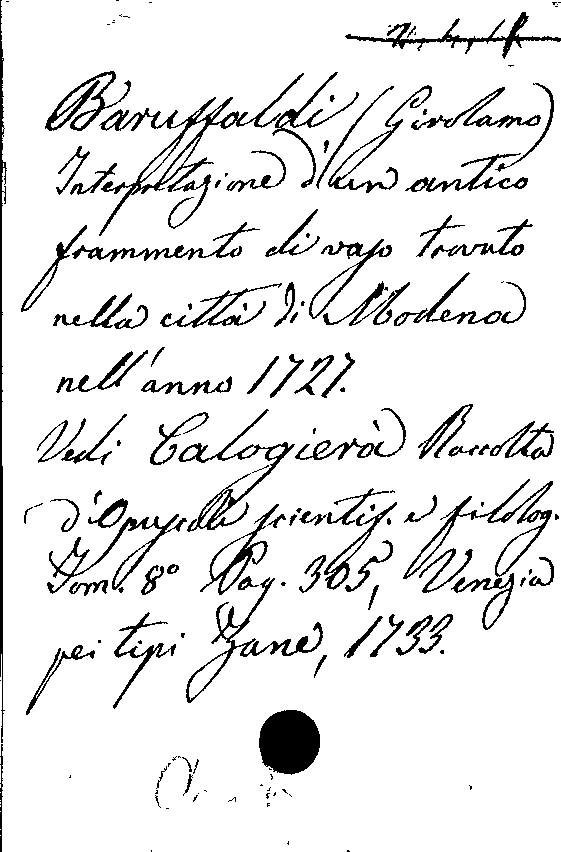 Baruffaldi (Girolamo)
Interpretazione d'un antico
frammento di vaso trovato
nella città di Modena
nell'anno 1727.
Vedi Calogierà Raccolta
d'Opuscoli scientif. e filolog.
Tom. 8º Pag. 305, Venezia
pei tipi Zane, 1733.